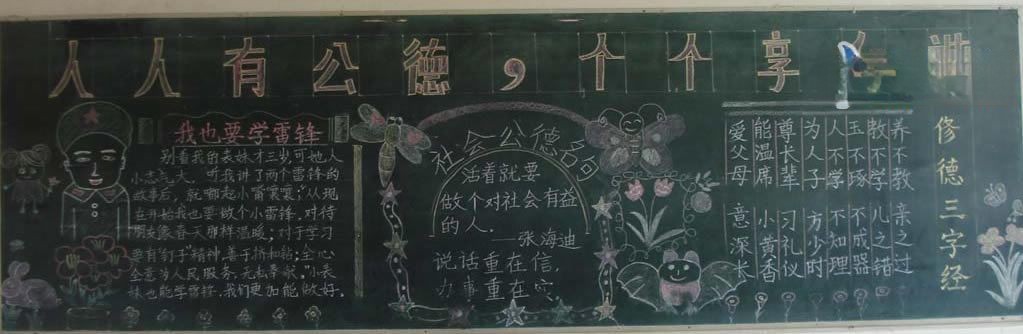 人人有公德，个个享
我也要学雷锋
别看我的表妹才三岁,可她人
小志气大。听我讲了两个雷锋的
故事后，就嘟起小嘴嚷嚷:"从现
在开始我也要做个小雷锋,对待
朋友像春天那样温暖;对于学习
要有钉子"精神,善于挤和钻;全心
全意为人民服务,无私奉献."小表
妹也能学雷锋,我们更加能做好.
社会公德名言
活着就要
做个对社会有益
的人.
——张海迪
说话重在信,
办事重在实
修德三字经
养不教 亲之过
教不学 儿之错
玉不琢 不成器
人不学 不知理
为人子 方少时
尊长辈 习礼仪
能温席 小黄香
爱父母 意深长